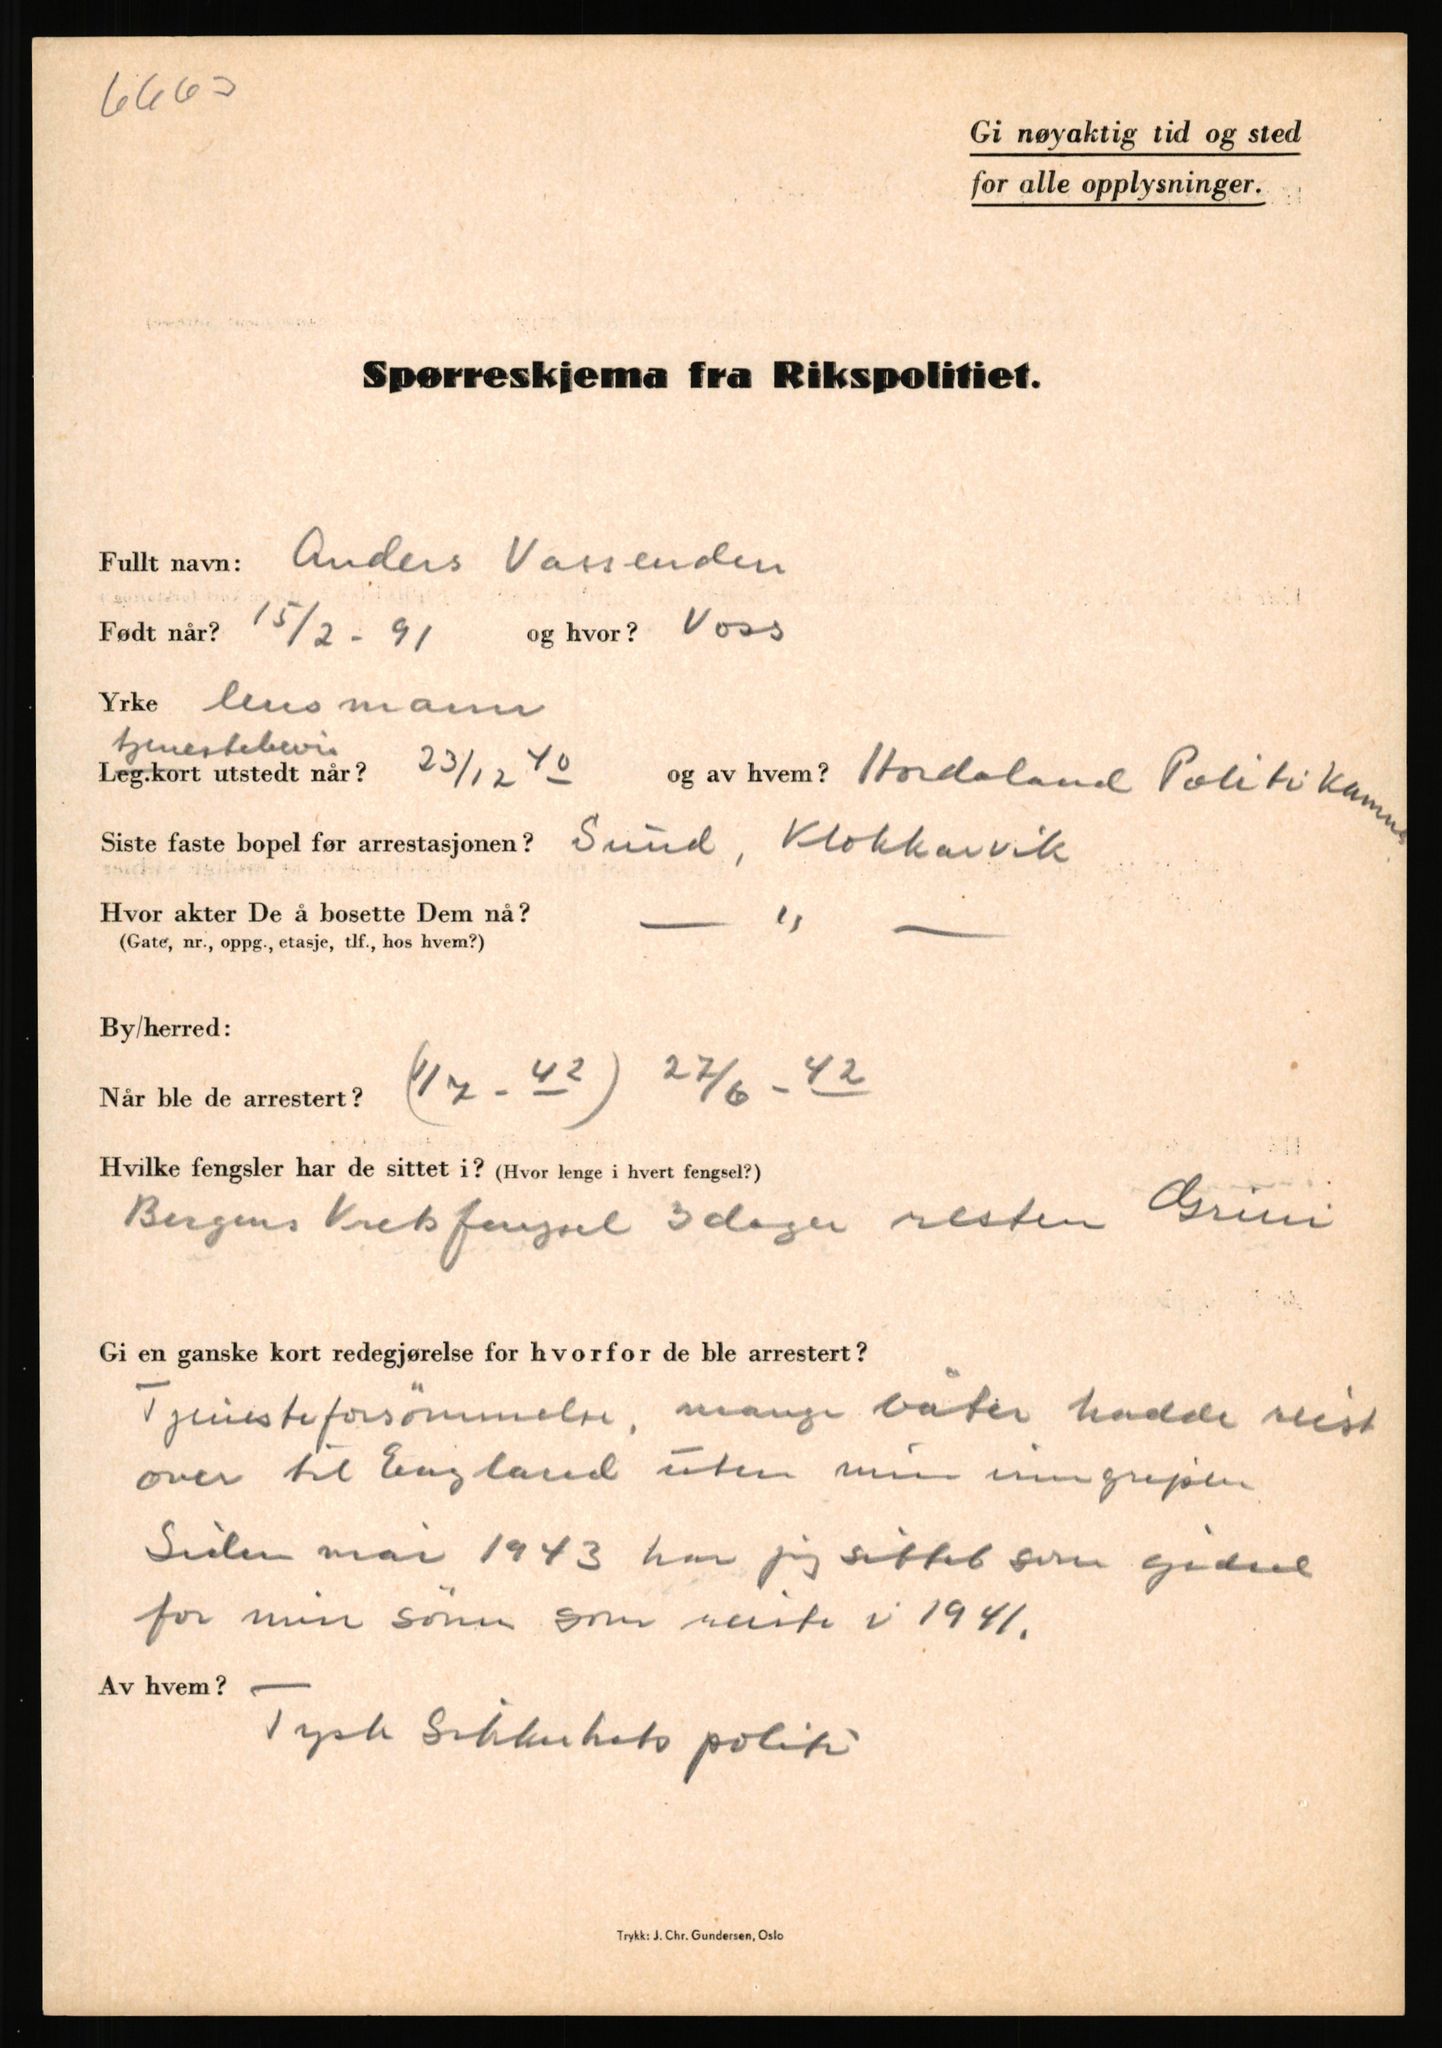 Gi nøyaktig tid og sted
for alle opplysninger.
Spørreskjema fra Rikspolitiet.
Fullt navn: Anders Vassenden
Født når? 15/2 - 91 og hvor? Voss
Yrke lensmann
tjenestebevis
Leg.kort utstedt når? 23/12 40 og av hvem? Hordaland Politikammer
Siste faste bopel før arrestasjonen? Sund, Klokkarvik
Hvor akter De å bosette Dem nå? — " —
(Gate, nr., oppg., etasje, tlf., hos hvem?)
By/herred:
Når ble de arrestert? (1/7 - 42) 27/6 - 42
Hvilke fengsler har de sittet i? (Hvor lenge i hvert fengsel?)
Bergens Kretsfengsel 3 dager resten Grini
Gi en ganske kort redegjørelse for hvorfor de ble arrestert?
Tjenesteforsömmelse, mange båter hadde reist
over til England uten min inngripen
Siden mai 1943 har jeg sittet som gidsel
for min sönn som reiste i 1941.
Av hvem?
Tysk Sikkerhets politi
Trykk: J. Chr. Gundersen, Oslo